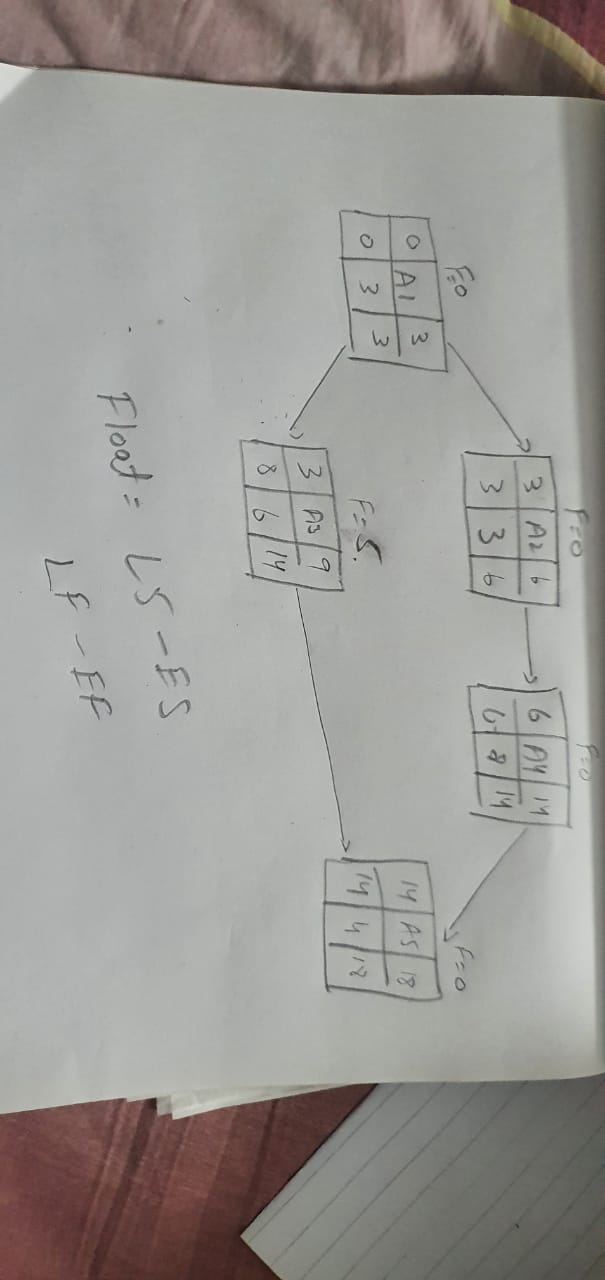 F=0
0 A1 3
0 3 3
F=0
3 A2 6
3 3 6
F=0
6 A4 14
6 8 14
F=5
3 A3 9
8 6 14
F=0
14 A5 18
14 4 18
Float = LS - ES
LF - EF